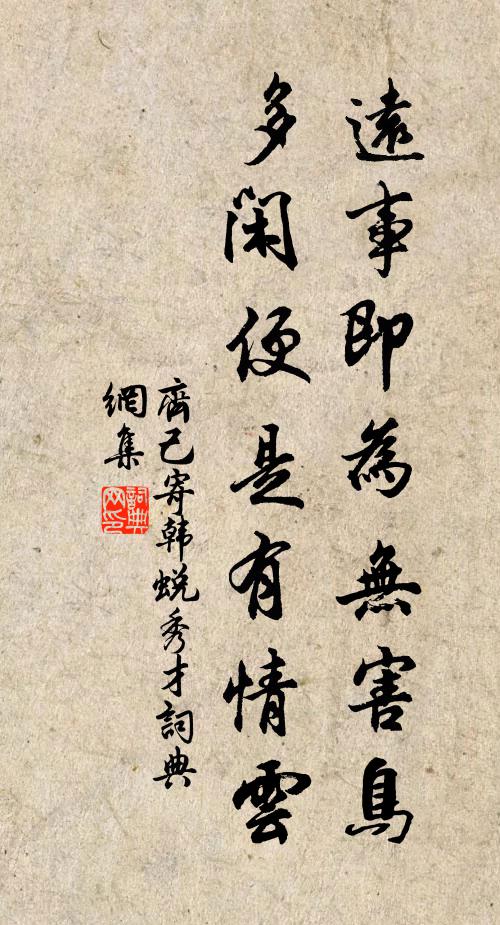 遠事即為無害鳥
多閑便是有情雲
齊己寄韩蜕秀才詞典
網集
詞典
网印